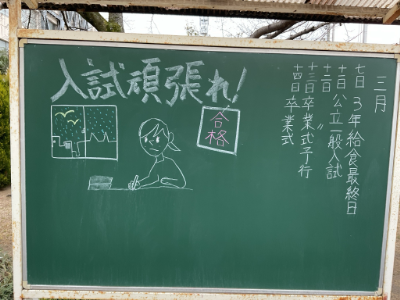 入試頑張れ!
合格
三月
七日 3年給食最終日
十一日 公立一般入試
十二日 〃
十三日 卒業式予行
十四日 卒業式